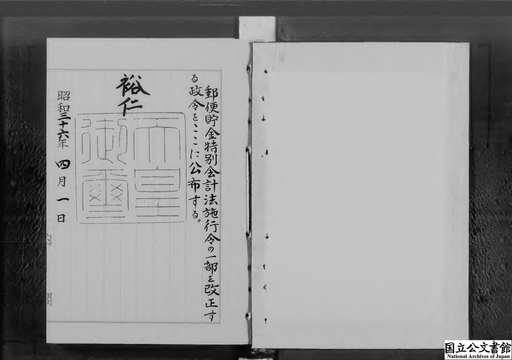 郵便貯金特別会計法施行令の一部を改正す
る政令をここに公布する。
裕仁
天皇
御璽
昭和三十六年四月一日
国立公文書館
National Archives of Japan